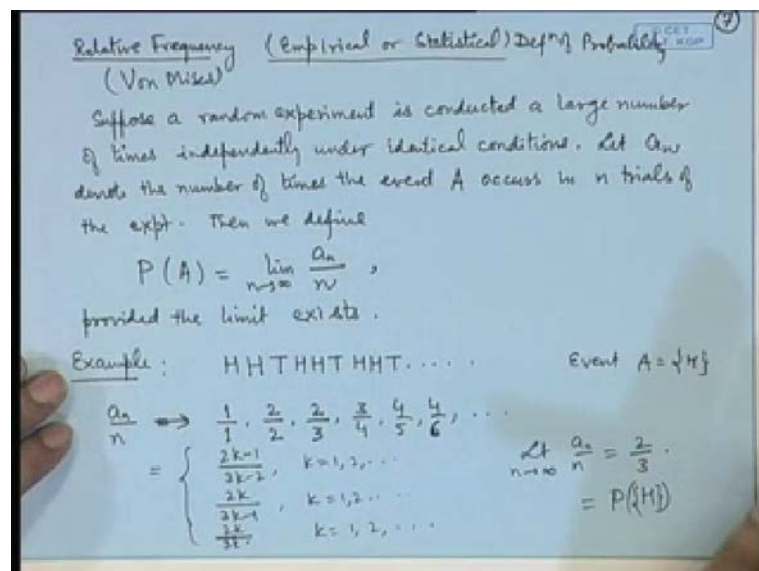 7
Relative Frequency (Empirical or Statistical) Defⁿ of Probability
(Von Mises)
Suppose a random experiment is conducted a large number
of times independently under identical conditions. Let aₙ
denote the number of times the event A occurs in n trials of
the expt. Then we define
P(A) = lim n→∞ aₙ/n ,
provided the limit exists.
Example : HHTHHTHHT..... Event A = {H}
aₙ/n → 1/1, 2/2, 2/3, 3/4, 4/5, 4/6, ...
= { (2k-1)/(3k-2), k=1,2,... Lt n→∞ aₙ/n = 2/3 .
2k/(3k-1), k=1,2... = P({H})
2k/3k, k=1,2,...